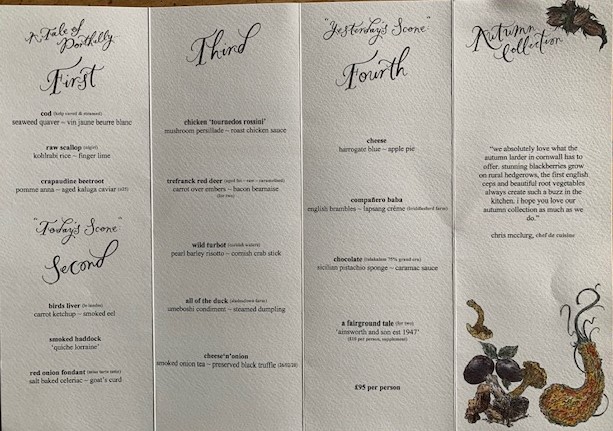 A Tale of
Porthilly
First
cod
seaweed quaver ~ vin jaune beurre blanc
raw scallop
kohlrabi rice ~ finger lime
crapaudine beetroot
pomme anna ~ aged kaluga caviar
"Today's Scone"
Second
birds liver
carrot ketchup ~ smoked eel
smoked haddock
'quiche lorraine'
red onion fondant
salt baked celeriac ~ goat's curd
Third
chicken 'tournedos rossini'
mushroom persillade ~ roast chicken sauce
trefranck red deer
carrot over embers ~ bacon bearnaise
(for two)
wild turbot (cornish waters)
pearl barley risotto ~ cornish crab stick
all of the duck
umeboshi condiment ~ steamed dumpling
cheese'n'onion
smoked onion tea ~ preserved black truffle
"Yesterday's Scone"
Fourth
cheese
harrogate blue ~ apple pie
compañero baba
english brambles ~ lapsang crème
chocolate
sicilian pistachio sponge ~ caramac sauce
a fairground tale (for two)
'ainsworth and son est 1947'
(£10 per person, supplement)
£95 per person
Autumn
Collection
"we absolutely love what the
autumn larder in cornwall has to
offer. stunning blackberries grow
on rural hedgerows, the first english
ceps and beautiful root vegetables
always create such a buzz in the
kitchen. i hope you love our
autumn collection as much as we
do."
chris mcclurg, chef de cuisine